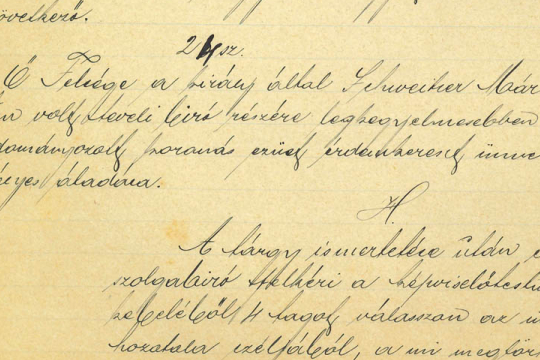 övetkező.
24 sz.
Ő Felsége a király által Schweitzer Már
volt teveli biró részére legkegyelmesebben
dományozott koronás ezüst érdemkereszt ünne
átadása.
H.
A tárgy ismertetése után
szolgabiró felkéri a képviselőtestü
kebeléből 4 tagot válasszon az
hozatala czéljából, a mi megtör